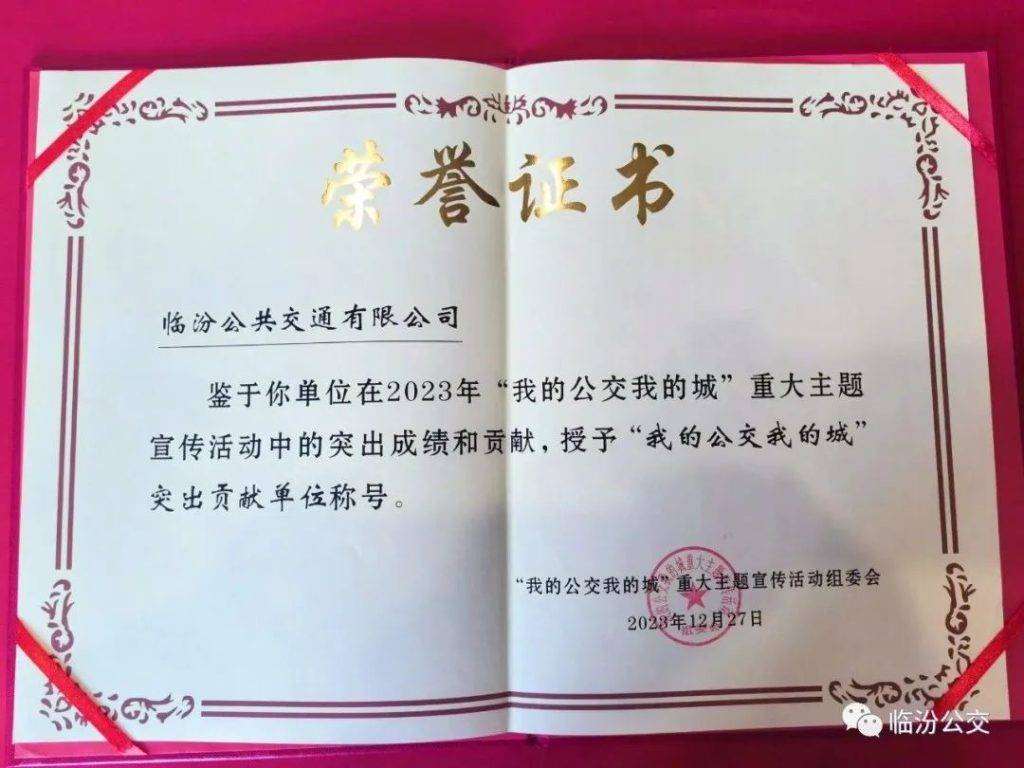 荣誉证书
临汾公共交通有限公司
鉴于你单位在2023年“我的公交我的城”重大主题
宣传活动中的突出成绩和贡献，授予“我的公交我的城”
突出贡献单位称号。
“我的公交我的城”重大主题宣传活动组委会
2023年12月27日
临汾公交